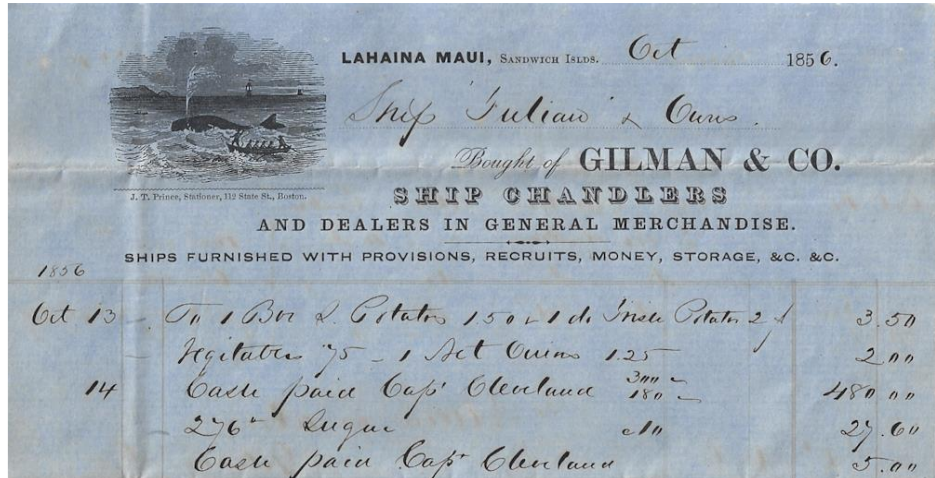 LAHAINA MAUI, SANDWICH ISLDS. Oct 1856.
Ship "Julian" & Owns.
Bought of GILMAN & CO.
J. T. Prince, Stationer, 112 State St., Boston.
SHIP CHANDLERS
AND DEALERS IN GENERAL MERCHANDISE.
SHIPS FURNISHED WITH PROVISIONS, RECRUITS, MONEY, STORAGE, &C. &C.
1856
Oct 13 To 1 Box S. Potatos 1.50 & 1 do Irish Potatos 2 3.50
Vegitables 75 - 1 Onions 1.25 2.00
14 Cash paid Capt Cleveland 300 180 480 00
276 Sugar 10 27.60
Cash paid Capt Cleveland 5.00